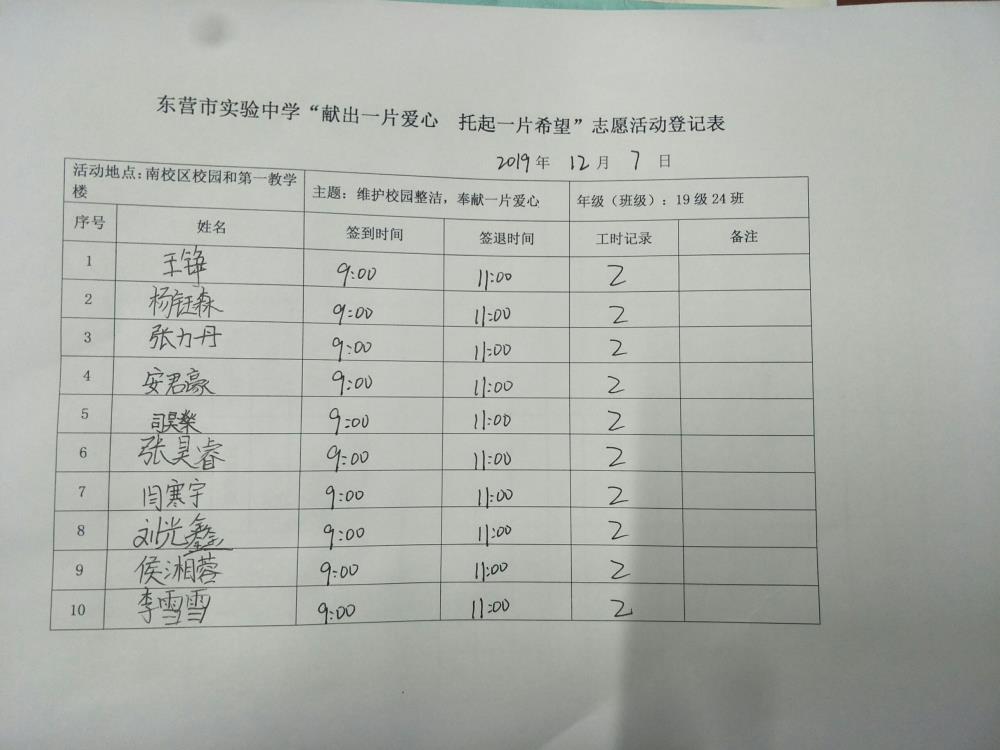 东营市实验中学“献出一片爱心 托起一片希望”志愿活动登记表
2019年 12月 7日
活动地点:南校区校园和第一教学楼 主题：维护校园整洁，奉献一片爱心 年级（班级）：19级24班
序号 姓名 签到时间 签退时间 工时记录 备注
1 王铮 9:00 11:00 2
2 杨钰森 9:00 11:00 2
3 张力丹 9:00 11:00 2
4 安君豪 9:00 11:00 2
5 9:00 11:00 2
6 张昊睿 9:00 11:00 2
7 闫寒宇 9:00 11:00 2
8 刘光鑫 9:00 11:00 2
9 侯湘蓉 9:00 11:00 2
10 李雪雪 9:00 11:00 2